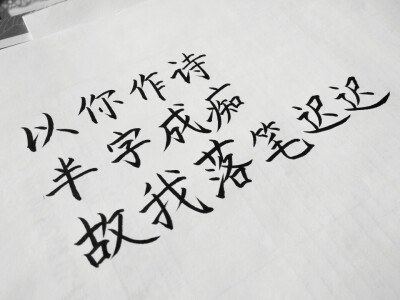 以你作诗
半字成痴
故我落笔迟迟